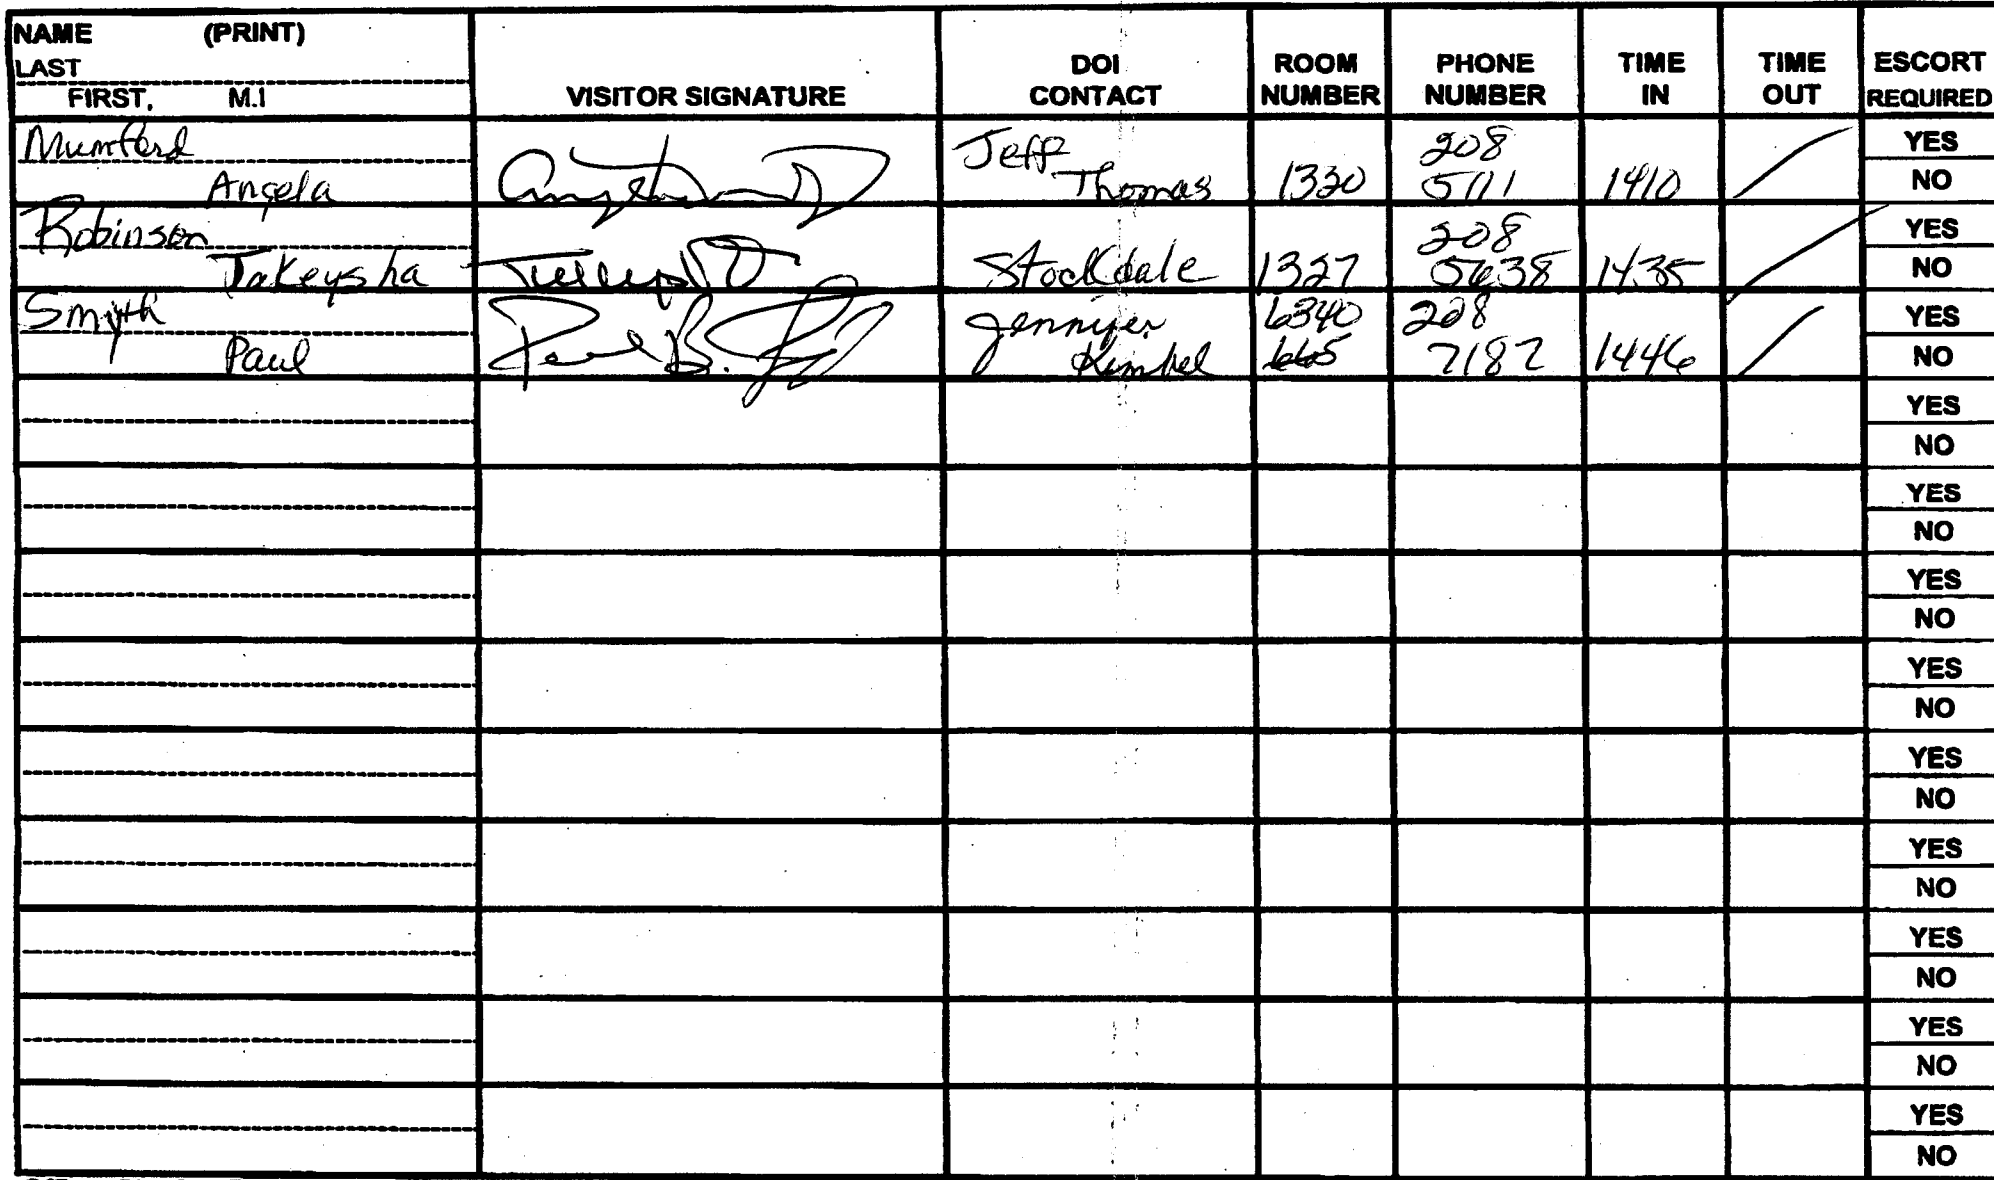 NAME (PRINT)
LAST
FIRST, M.I
VISITOR SIGNATURE
DOI CONTACT
ROOM NUMBER
PHONE NUMBER
TIME IN
TIME OUT
ESCORT REQUIRED
Mumford
Angela
Jeff
Thomas
1330
208
5111
1410
YES
NO
Robinson
Takeysha
Stockdale
1327
208
5638
1435
YES
NO
Smyth
Paul
Paul B.
Jennifer
Kimbel
6340
208
7182
1446
YES
NO
YES
NO
YES
NO
YES
NO
YES
NO
YES
NO
YES
NO
YES
NO
YES
NO
YES
NO